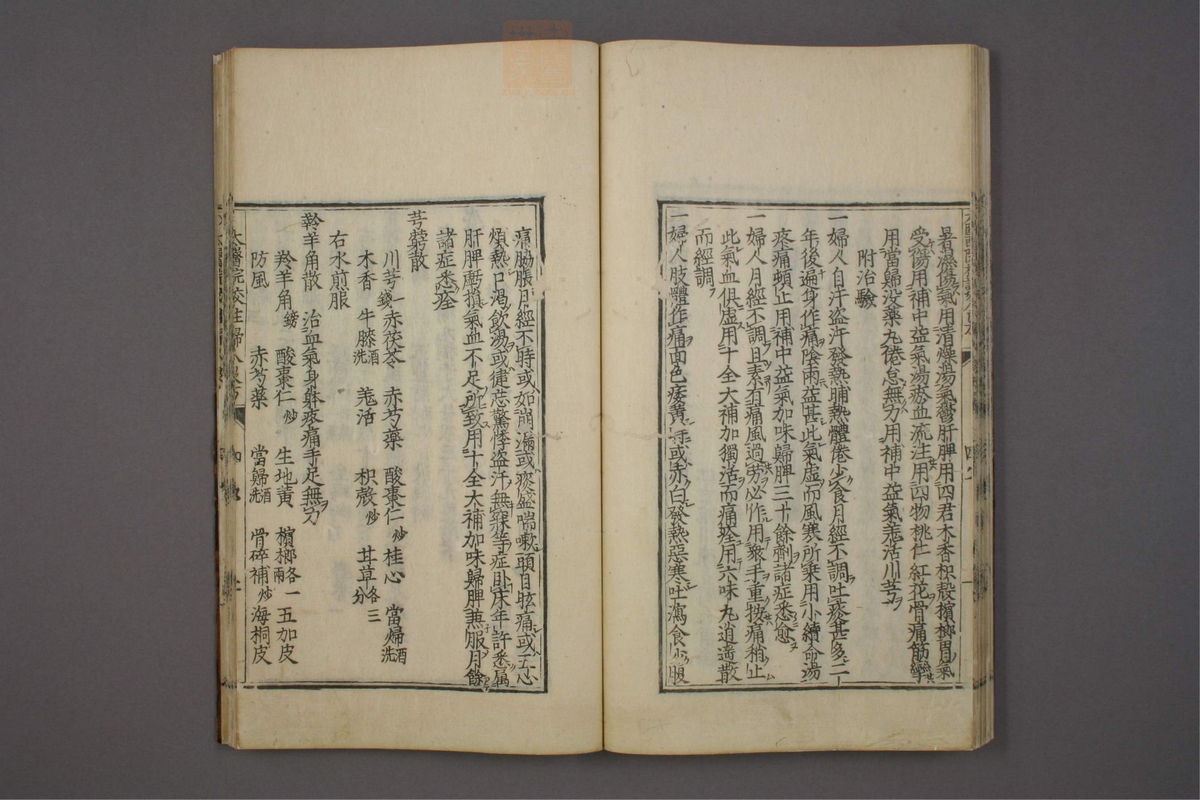 暑濕傷氣用清燥湯氣鬱肝脾用四君木香枳殼檳榔胃氣
受傷用補中益氣湯瘀血流注用四物桃仁紅花骨痛筋攣
用當歸沒藥丸倦怠無力用補中益氣羗活川芎
附治驗
一婦人自汗盜汗發熱晡熱體倦少食月經不調吐痰甚多二
年後遍身作痛陰雨益甚此氣虛而風寒所乗用小續命湯
疼痛頓止用補中益氣加味歸脾三十餘劑諸症悉愈
一婦人月經不調且素有痛風過勞必作用衆手重按痛稍止
此氣血俱虛用十全大補加獨活而痛痊用六味丸逍遥散
而經調
一婦人肢體作痛面色痿黃時或赤白發熱惡寒吐瀉食少腹
痛脇脹月經不時或如崩漏或痰盛喘嗽頭目眩痛或五心
煩熱口渴飲湯或健忘驚悸盜汗無寐等症卧牀年許悉屬
肝脾虧損氣血不足所致用十全大補加味歸脾兼服月餘
諸症悉痊
芎藭散
川芎一錢 赤茯苓 赤芍藥 酸棗仁炒 桂心 當歸酒洗
木香 牛膝酒洗 羗活 枳殼炒 甘草各三分
右水煎服
羚羊角散 治血氣身躰疼痛手足無力
羚羊角鎊 酸棗仁炒 生地黄 檳榔各一兩 五加皮
防風 赤芍藥 當歸酒洗 骨碎補炒 海桐皮
太醫院校註婦人良方